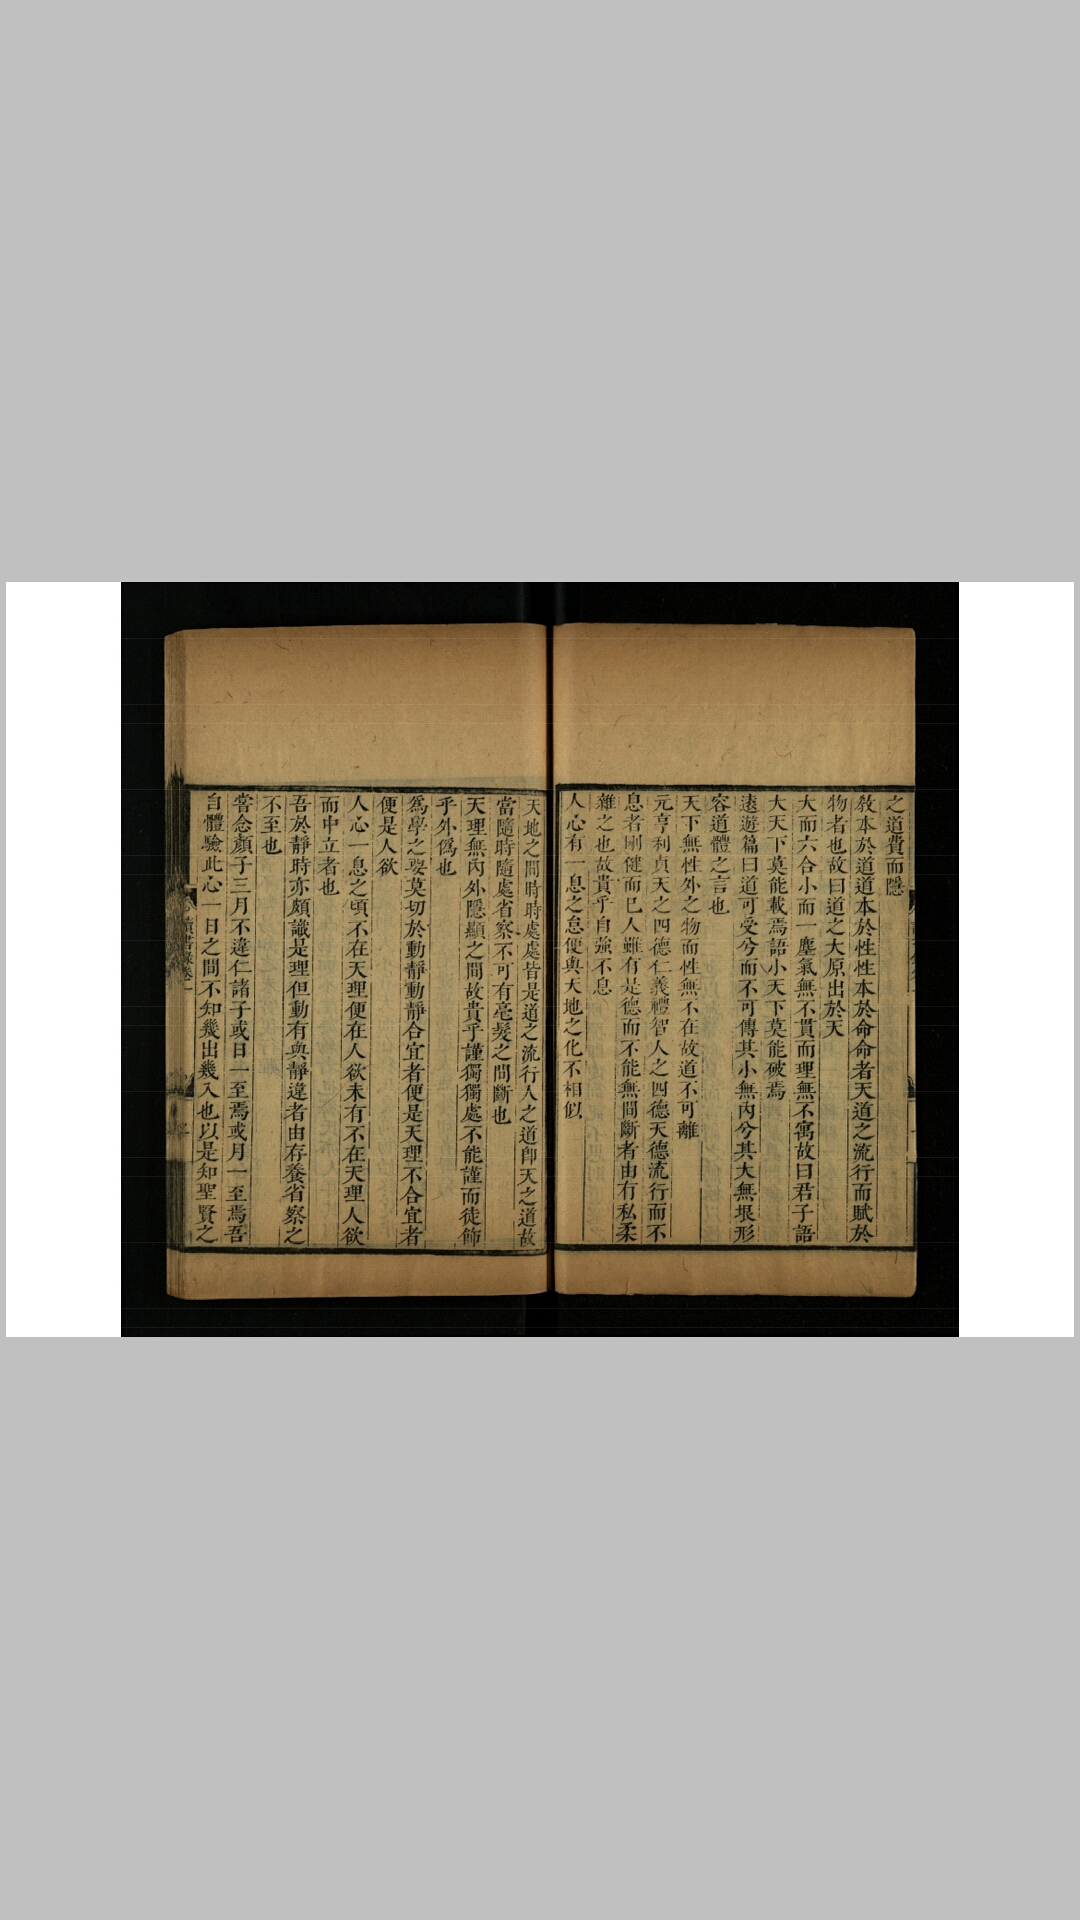 之道費而隱
敎本於道道本於性性本於命命者天道之流行而賦於
物者也故曰道之大原出於天
大而六合小而一塵氣無不貫而理無不寓故曰君子語
大天下莫能載焉語小天下莫能破焉
遠遊篇曰道可受兮而不可傳其小無內兮其大無垠形
容道體之言也
天下無性外之物而性無不在故道不可離
元亨利貞天之四德仁義禮智人之四德天德流行而不
息者剛健而已人雖有是德而不能無間斷者由有私柔
雜之也故貴乎自強不息
人心有一息之怠便與天地之化不相似
天地之間時時處處皆是道之流行人之道卽天之道故
當隨時隨處省察不可有毫髮之間斷也
天理無內外隱顯之間故貴乎謹獨獨處不能謹而徒飾
乎外僞也
爲學之要莫切於動靜動靜合宜者便是天理不合宜者
便是人欲
人心一息之頃不在天理便在人欲未有不在天理人欲
而中立者也
吾於靜時亦頗識是理但動有與靜違者由存養省察之
不至也
嘗念顏子三月不違仁諸子或日一至焉或月一至焉吾
自體驗此心一日之間不知幾出幾入也以是知聖賢之
讀書錄卷一